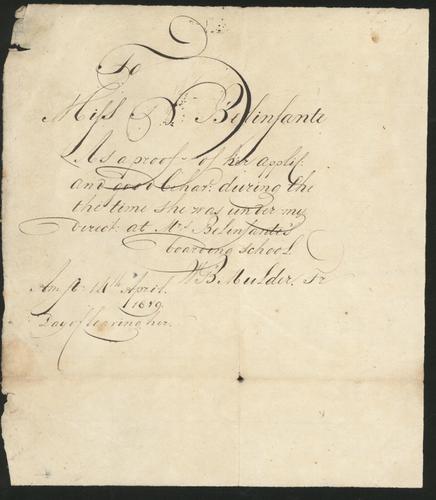 To
Miss B: Belinfante
As a proof of her applif:
and good Char: during the
the time she was under my
direct: at Mrs. Belinfante's
boarding school.
WB Mulder, Jr
Amst: 14th April.
1819.
Day of leaving her.